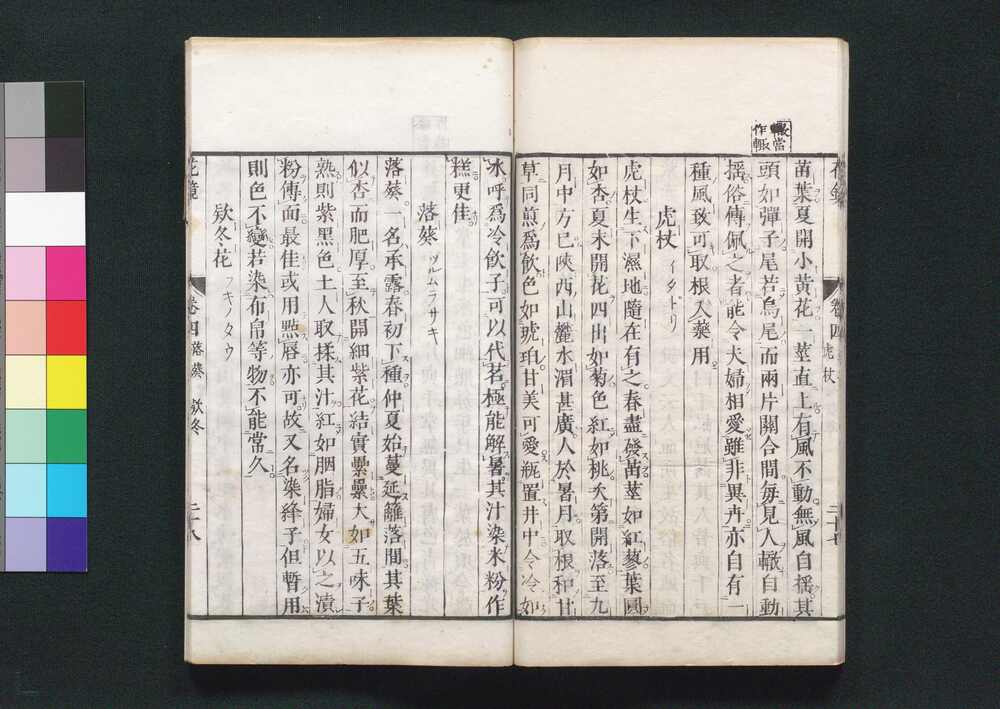 轍當
作輙
花鏡
卷四 虎杖
二十七
苗葉夏開小黃花一莖直上有風不動無風自搖其
頭如彈子尾若烏尾而兩片關合間每見人轍自動
搖俗傳佩之者能令夫婦相愛雖非異卉亦自有一
種風致可取根入藥用
虎杖 イタドリ
虎杖生下濕地隨在有之春盡發苗莖如紅蓼葉圓
如杏夏末開花四出如菊色紅如桃夭第開落至九
月中方已陝西山麓水湄甚廣人於暑月取根和甘
草同煎爲飲色如琥珀甘美可愛瓶置井中令冷如
冰呼爲冷飲子可以代茗極能解暑其汁染米粉作
糕更佳
落葵 ツルムラサキ
落葵一名承露春初下種仲夏始蔓延籬落間其葉
似杏而肥厚至秋開細紫花結實纍纍大如五味子
熟則紫黑色土人取揉其汁紅如胭脂婦女以之漬
粉傅面最佳或用㸃唇亦可故又名染絳子但暫用
則色不變若染布帛等物不能常久
欵冬花 フキノタウ
花鏡
卷四 落葵 欵冬
二十八